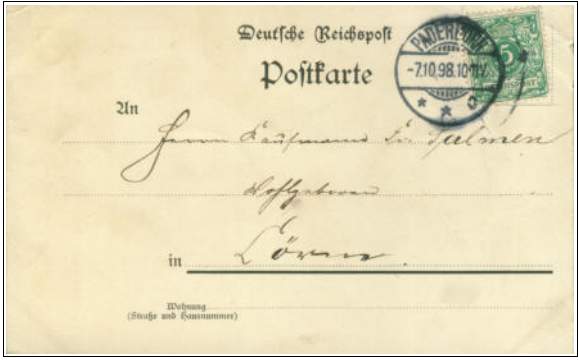 Deutsche Reichspost
Postkarte
PADERBORN
-7.10.98.10-11V.
5
An
Herrn Kaufmann Fr. Salmen
Wohlgeboren
in
Wohnung
(Straße und Hausnummer)